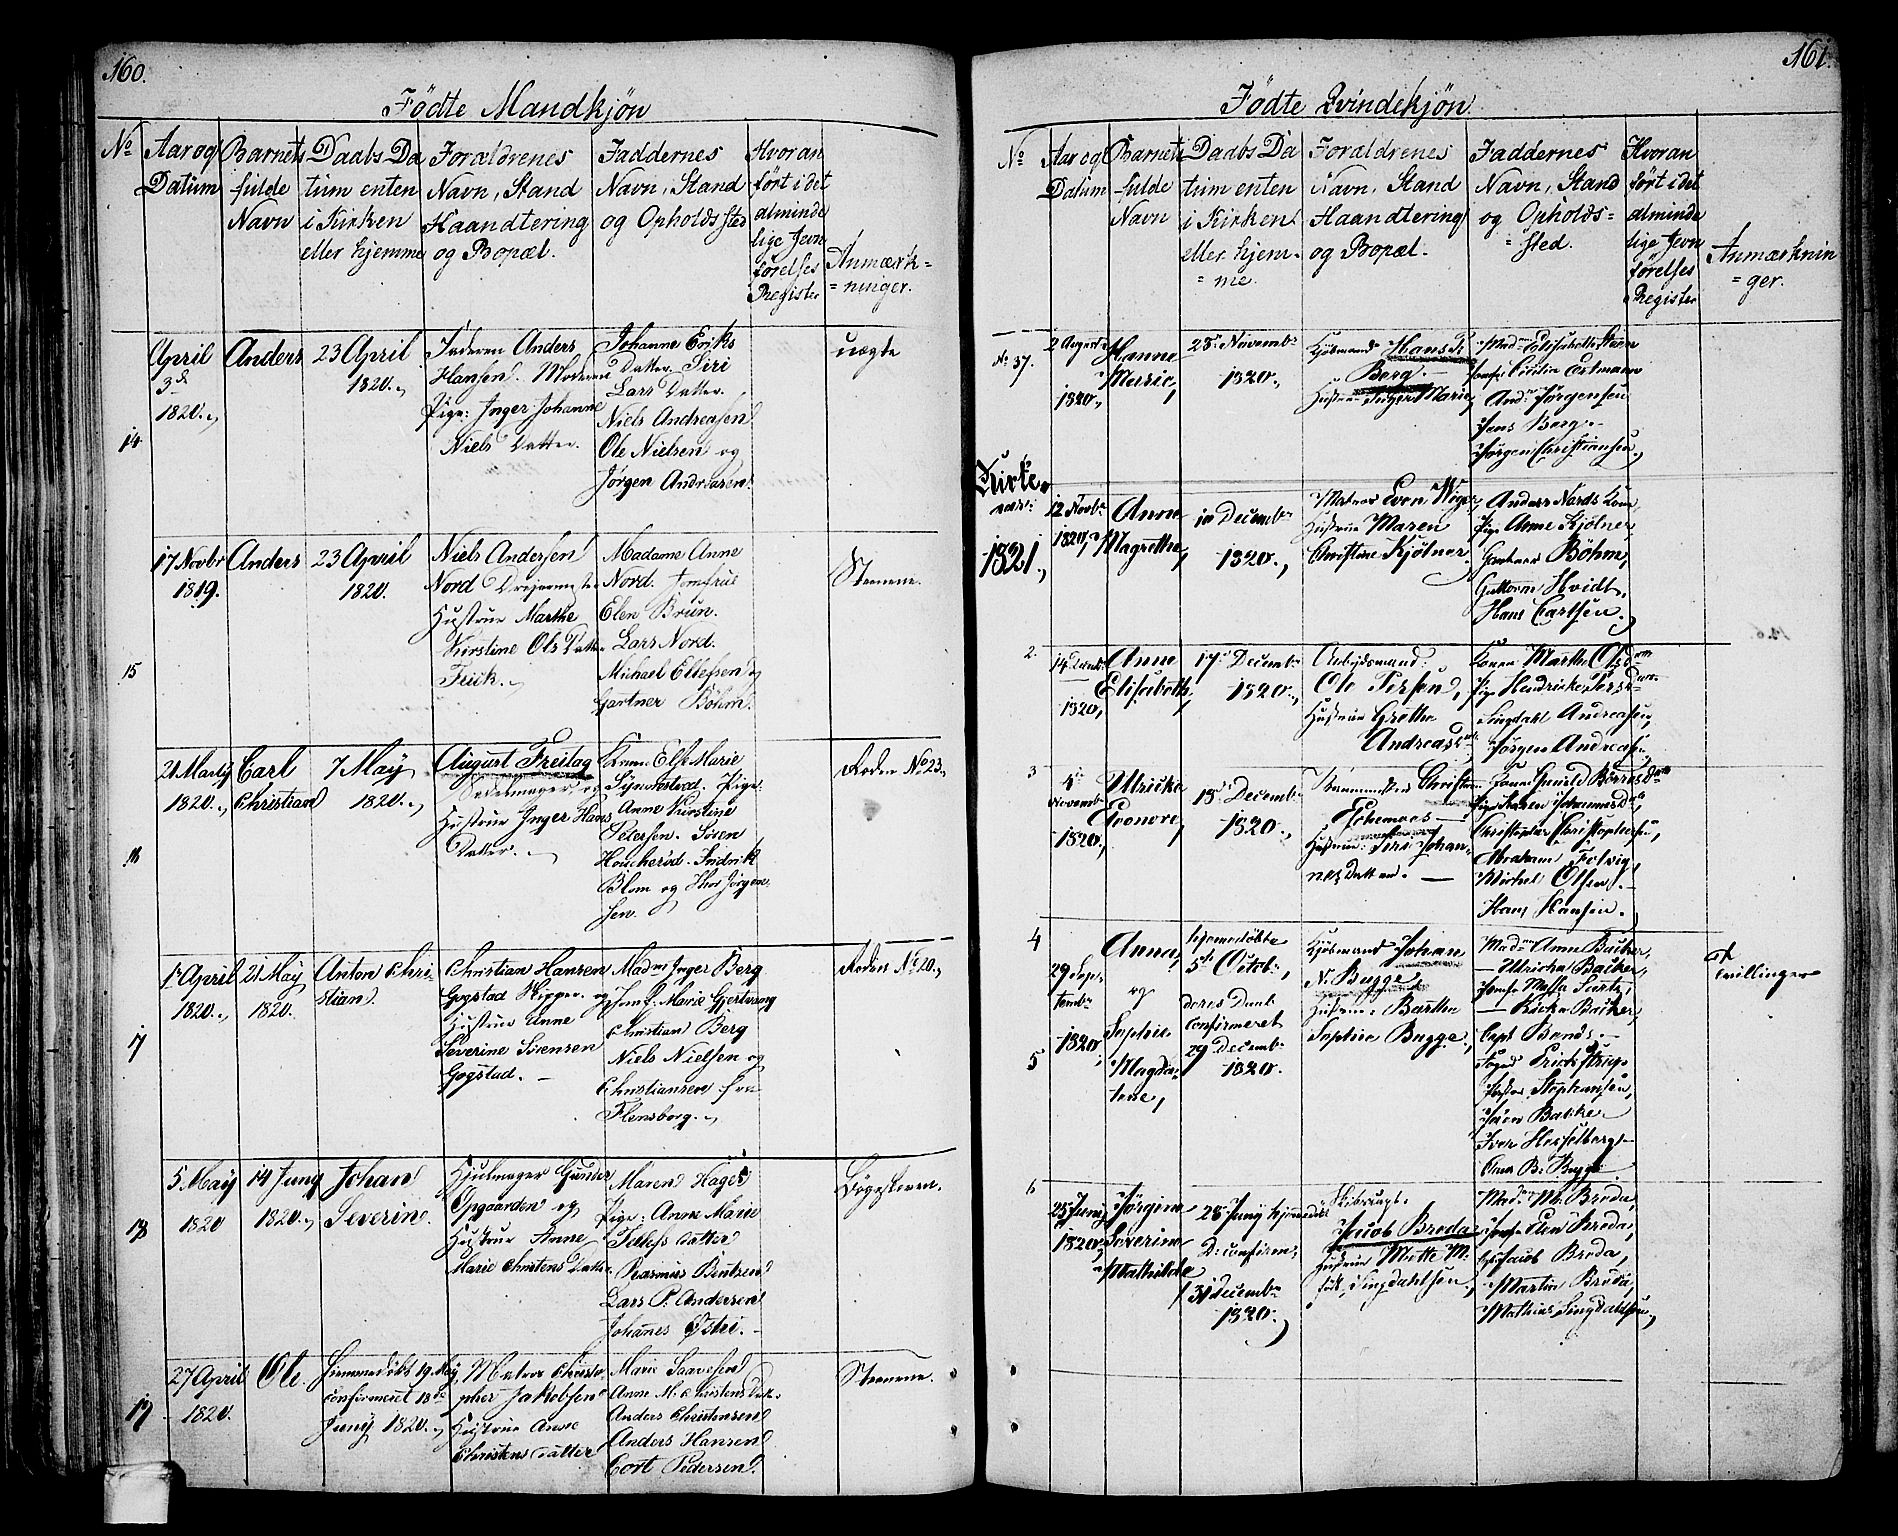 160.
Fødte Mandkjøn
No
Aar og
Datum
Barnets
fulde
Navn
Daabs Da
tum enten
i Kirken
eller hjemme
Forældrenes
Navn, Stand
Haandtering
og Bopæl.
Faddernes
Navn, Stand
og Opholds sted
Hvor an
ført i det
alminde
lige Jevn
førelses
Register
Anmærk=
=ninger.
14
April
3d
1820.
Anders
23 April
1820.
Faderen Anders
Hansen. Moderen
Pige: Inger Johanne
Niels Datter.
Johanne Eriks
Datter. Siri
Lars Datter.
Niels Andreasen
Ole Nielsen og
Jørgen Andreasen.
uægte
15
17 Novbr
1819.
Anders
23 April
1820.
Niels Andersen
Nord
Hustrue Marthe
Kirstine Ols Datter
Madame Anne
Nord. Jomfrue
Elen Brun.
Lars Nord.
Michael Ellefsen
Gartner Böhm.
Steenene.
16
21 Marty
1820.
Carl
Christian
7 May
1820.
August Freitag
og
Hustrue Inger Hans
Datter.
Kone Else Marie
Pige:
Anne Kirstine
Petersen. Søren
Houcherød. Fridrik
Blom og Thor Jørgen
sen.
Roden No 23.
17
1 April
1820.
21 May
1820.
Anton Chri-
stian
Christian Hansen
Gogstad Skipper og
Hustrue Anne
Severine Sørensen
Gogstad.
Madme Inger Berg
Jomf: Marie Gjertvang
Christian Berg
Niels Nielsen og
Christiansen fra
Flensborg.
Roden No 20.
18
5 May
1820
14 Juny
1820.
Johan
Severin.
Hjulmager Gunder
Opgaarden og
Hustrue Anne
Marie Christens Datter.
Maren Hager
Pige: Anne Marie
Datter
Rasmus Bentsen
Lars P. Andersen
Johanes Østri.
Bøgeskoven.
19
27 April
1820.
Ole.
Hjemmedøbt 19 May
confirmeret 18de
Juny 1820.
Matros Christo
pher Jakobsen
Hustrue Anne
Christens Datter
Marie Saavesen
Anne M. Christens Datt.
Anders Christensen
Anders Hansen
Cort Pedersen.
Steenene.
161.
Fødte Qvindekjøn
No
Aar og
Datum
Barnets
fulde
Navn
Daabs Da
tum enten
i Kirken
eller hjem=
=me.
Forældrenes
Navn, Stand
Haandtering
og Bopæl.
Faddernes
Navn, Stand
og Opholds=
=sted.
Hvor an
ført i det
alminde
lige Jevn
førelses
Register
Anmærknin
=ger.
No 37.
2 August
1820,
Hanne
Merrie,
28 Novembr
1820.
Kjøbmand Hans P.
Berg.
Hustrue Inger Marie
Jomfr Cicilia Cortmann
And: Jørgensen
Jens Berg
Jørgen Christiansen.
Kirke
aar:
1821.
12 Novbr
1820,
Anne
Magrethe,
10 Decembr
1820.,
Matros Even
Hustrue Maren
Christine Kjølner.
Anders Nords Kone
Pige Anne Kjølner,
Gartner Böhm,
Guttorm Hvidt,
Hans Carlsen.
2.
1820,
Anne
Elisabeth,
17 Decembr
1820.,
Arbejdsmand:
Ole Persen,
Hustrue Grethe
Andreasd
Konen Marthe Olsdttr
Pige Hendrikke
Singdahl Andreasen,
Jørgen Andreas
3
4
Novembr
1820,
Ulrickè
Eleonore,
18 Decembr
1820.,
Christen
Hustrue: Siri Johan-
nesdatter.
Christopher Christophersen,
Abraham Folvig,
Michel Olsen.
Hans Hansen.
4
5
29 Sep-
tembr
1820
Anna,
og
Sophie
Magda-
lene,
hjemedøbte
5te Octob:,
deres Daab
confirmeret
29 Decembr
1820.
Kjøbmand Johan
N. Bugge,
Hustrue: Barthe
Sophie Bugge.,
Madme Anne Backer,
— Ulricha Backer,
— Backer,
Capt Bends.
Foged
Stephansen,
Søren Backe.
Iver Hesselberg
B. Bugge.
Tvillinger
6
25 Juny
1820,
Jørgine
Severine
Mathilde
28 Juny hjemmedøbt
D: confirm:
31 Decembr
1820.
Skibscapt.
Jacob Breda
Hustrue Mette M.
fød Singdahlsen,
Madme M. Breda,
Jomfr Elen Breda,
Jacob Breda,
Martin Breda,
Mathias Singdahlsen,